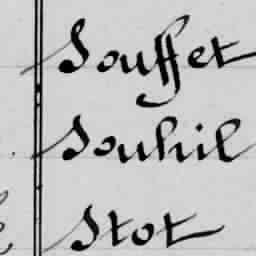 Souffet
Souhil
Stot